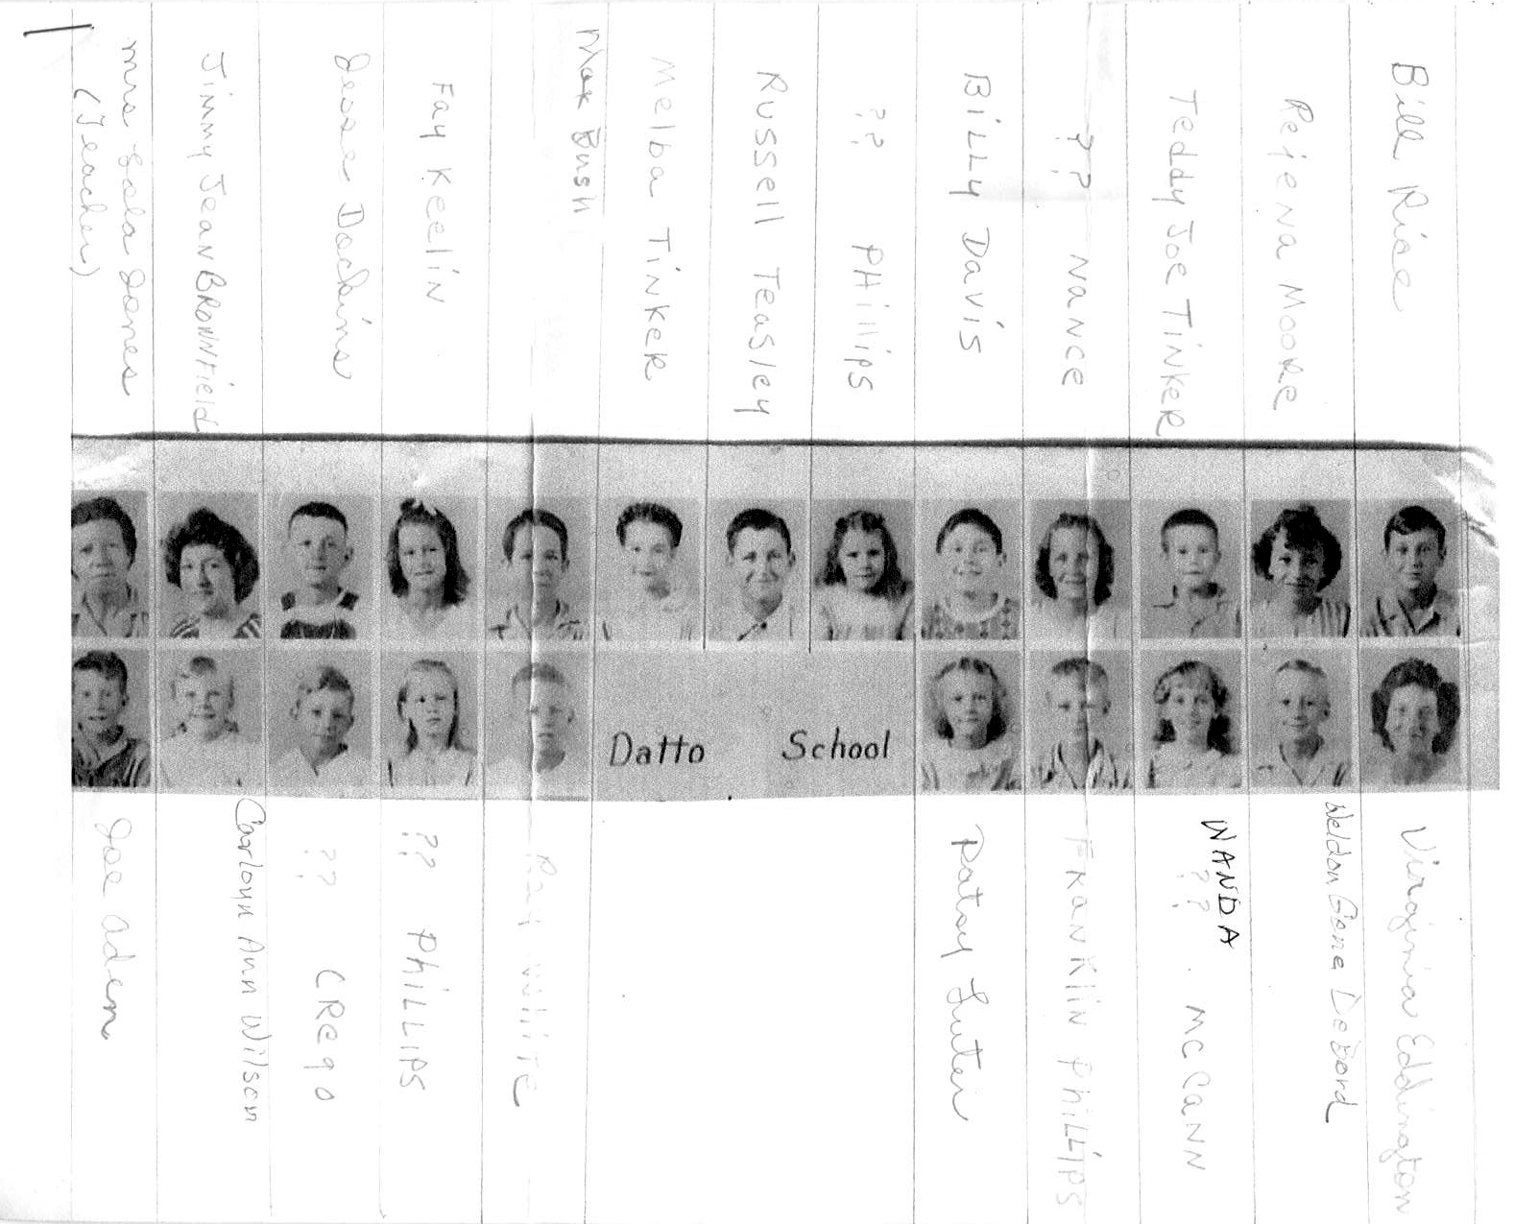 Mrs Lola Jones
(Teacher)
Jimmy Jean BROWNField
Jesse Dockins
Fay Keelin
Max Bush
Melba TiNKER
Russell Teasley
?? PHillips
BiLLy Davis
?? NANCE
Teddy Joe TiNKER
Rejena Moore
Bill Rice
Datto School
Joe Aden
Carloyn Ann Wilson
?? CRego
?? PhiLLiPS
Ray WhiTe
Patsy Luter
FRanklin PhiLLiPS
WANDA
?? McCann
Weldon Gene DeBord
Virginia Eddington